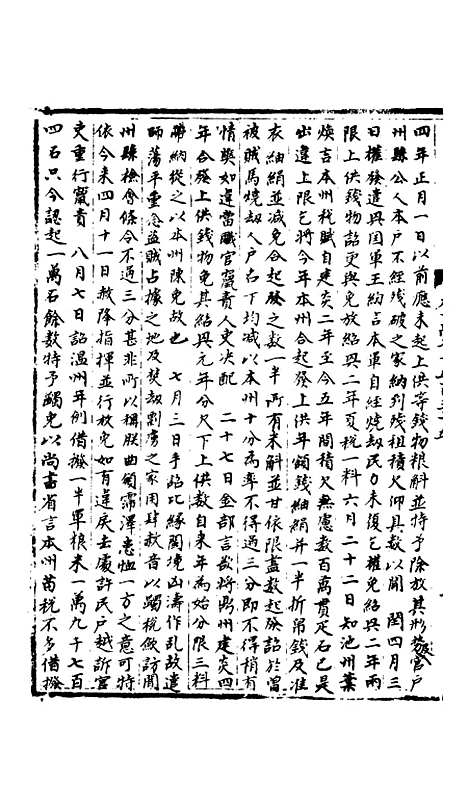 四年正月一日以前應未起上供等錢物粮斛並特予除放其形勢官戶
州縣公人本戶不經殘破之家納到殘租積欠仰具數以聞 閏四月三
日權發遣興國軍王綯言本軍自經燒刼民力未復乞權免紹興二年兩
限上供錢物詔更與免放紹興二年夏稅一料六月二十二日知池州葉
煥言本州稅賦自建炎二年至今五年間積欠無慮數百萬貫疋石已是
出違上限乞將今年本州合起發上供年額錢紬絹并一半折帛錢及准
衣紬絹並減免合起發之數一半所有米斛並甘依限盡數起發詔於曾
被賊馬燒刼人戶名下均減以本州十分為率不得過三分即不得稍有
情弊如違當職官竄責人吏決配 二十七日金部言欲將鼎州建炎四
年合發上供錢物免其紹興元年分尺下上供數自來年為始分限三料
帶納從之以本州陳免故也 七月三日手詔比緣閩境凶濤作亂故遣
師蕩平重念盜賊占據之地及焚刼剽虜之家用肆赦音以蠲稅斂訪聞
州縣檢會條令不過三分甚非所以稱朕曲頒霈澤惠恤一方之意可特
依今來四月十一日赦降指揮並行放免如有違戾去處許民戶越訴官
吏重行竄責 八月七日詔溫州年例借撥一半軍粮米一萬九千七百
四石只今認起一萬石餘數特予蠲免以尚書省言本州苗稅不多借撥